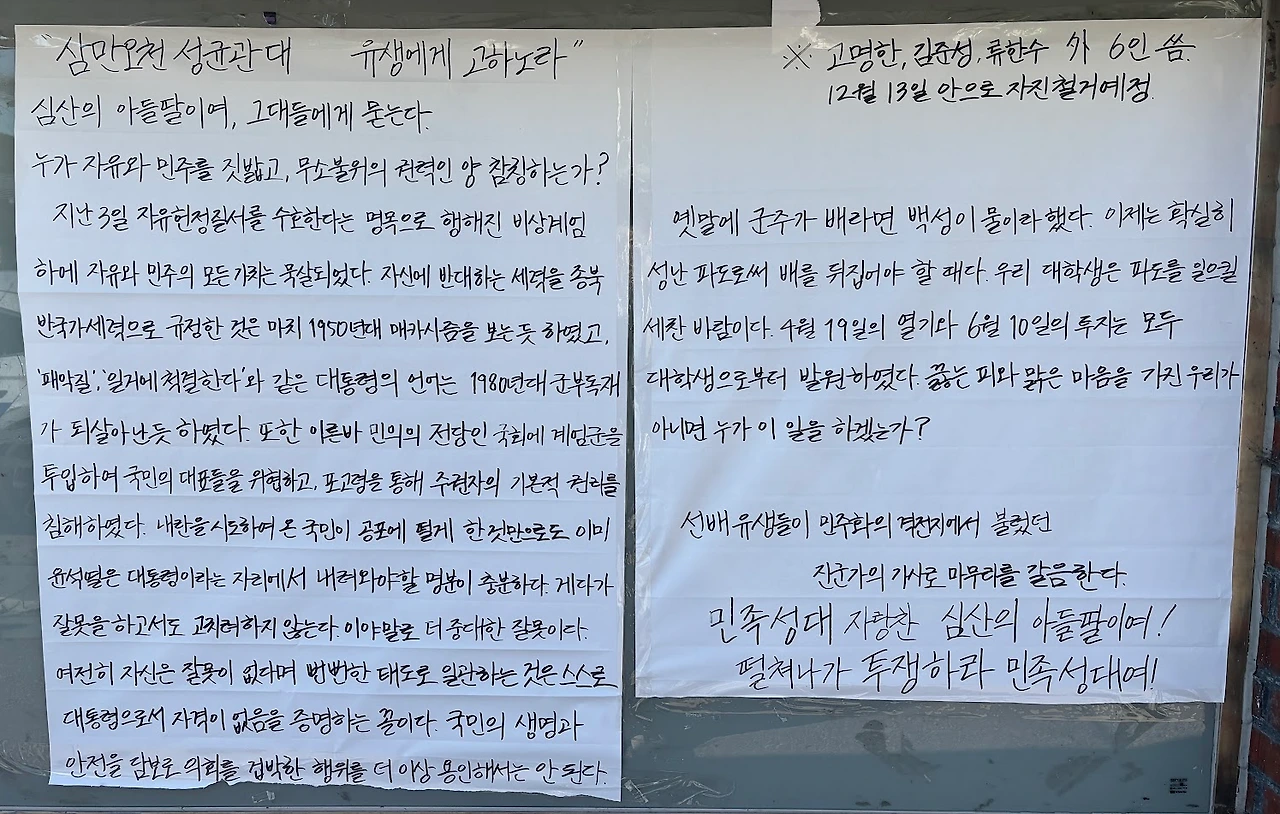 "삼만오천 성균관대 유생에게 고하노라"
심산의 아들딸이여, 그대들에게 묻는다.
누가 자유와 민주를 짓밟고, 무소불위의 권력인 양 참칭하는가?
지난 3일 자유헌정질서를 수호한다는 명목으로 행해진 비상계엄
하에 자유와 민주의 모든 가치는 묵살되었다. 자신에 반대하는 세력을 종북
반국가세력으로 규정한 것은 마치 1950년대 매카시즘을 보는 듯 하였고,
'패악질', '일거에 척결한다'와 같은 대통령의 언어는 1980년대 군부독재
가 되살아난듯 하였다. 또한 이른바 민의의 전당인 국회에 계엄군을
투입하여 국민의 대표들을 위협하고, 포고령을 통해 주권자의 기본적 권리를
침해하였다. 내란을 시도하여 온 국민이 공포에 떨게 한것만으로도 이미
윤석열은 대통령이라는 자리에서 내려와야할 명분이 충분하다. 게다가
잘못을 하고서도 고치려하지 않는다. 이야말로 더 중대한 잘못이다.
여전히 자신은 잘못이 없다며 뻔뻔한 태도로 일관하는 것은 스스로
대통령으로서 자격이 없음을 증명하는 꼴이다. 국민의 생명과
안전을 담보로 의회를 겁박한 행위를 더 이상 용인해서는 안 된다.
※ 고명한, 김준성, 류한수 外 6인 씀.
12월 13일 안으로 자진철거예정.
옛말에 군주가 배라면 백성이 물이라 했다. 이제는 확실히
성난 파도로써 배를 뒤집어야 할 때다. 우리 대학생은 파도를 일으킬
세찬 바람이다. 4월 19일의 열기와 6월 10일의 투지는 모두
대학생으로부터 발원하였다. 끓는 피와 맑은 마음을 가진 우리가
아니면 누가 이 일을 하겠는가?
선배 유생들이 민주화의 격전지에서 불렀던
진군가의 가사로 마무리를 갈음한다.
민족성대 자랑찬 심산의 아들딸이여!
떨쳐나가 투쟁하라 민족성대여!